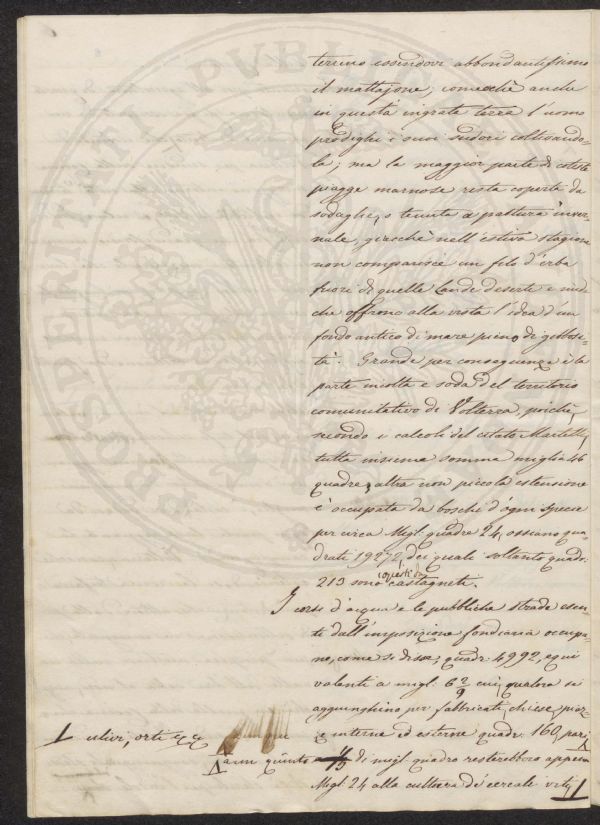 terreno essendovi abbondantissimo
il mattajone; comecchè anche
in questa ingrata terra l'uomo
prodighi i suoi sudori coltivando-
la; ma la maggior parte di coteste
piagge marnose resta coperta da
sodaglie, o tenuta a pastura inver-
nale, giacchè nell'estiva stagione
non comparisce un filo d'erba
fuori di quelle lande deserte e nude
che offrono alla vista l'idea d'un
fondo antico di mare pieno di gibbosi-
tà. Grande per conseguenza è la
parte incolta e soda del territorio
comunitativo di Volterra, poichè,
secondo i calcoli del citato Martelli,
tutta insieme somma miglia 46
quadre, altra non piccola estensione
è occupata da boschi d'ogni specie
per circa Migl: quadre 24, ossiano qua-
drati 19272, dei quali soltanto quadr:
coperti da
213 sono castagneti.
I corsi d'acqua e le pubbliche strade esen-
ti dall'imposizione fondiaria occupa-
no, come si disse, quadr: 4992, equi
valenti a migl: 6 2/9 cui, qualora si
aggiunghino per fabbricati, chiese, piaz-
ze interne ed esterne quadr: 160, pari
a un quinto di migl: quadre resterebbero appena
Migl: 24 alla cultura de' cereali viti,
ulivi, orti